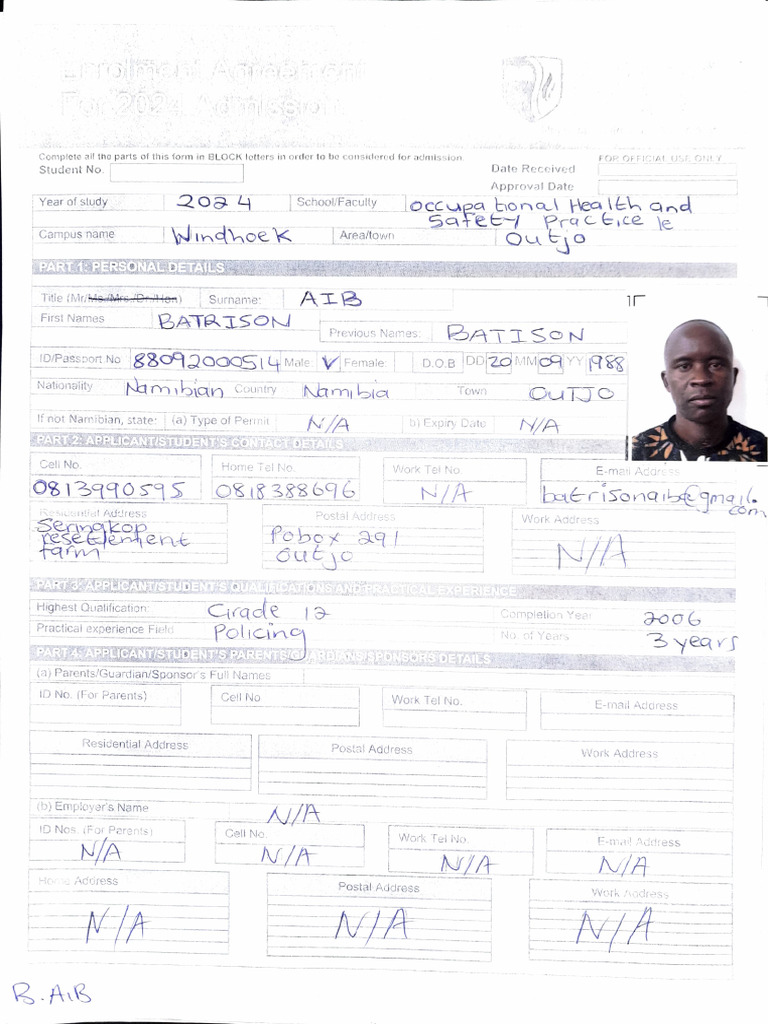 Enrolment Agreement
For 2024 Admission
Complete all the parts of this form in BLOCK letters in order to be considered for admission.
FOR OFFICIAL USE ONLY
Student No.
Date Received
Approval Date
Year of study 2024 School/Faculty Occupational Health and
Safety Practice le
Campus name Windhoek Area/town Outjo
PART 1: PERSONAL DETAILS
Title (Mr/Ms./Mrs./Dr./Hon) Surname: AIB
First Names BATRISON Previous Names: BATISON
ID/Passport No 88092000514 Male: V Female: D.O.B DD 20 MM 09 YY 1988
Nationality Namibian Country Namibia Town OUTJO
If not Namibian, state: (a) Type of Permit N/A b) Expiry Date N/A
PART 2: APPLICANT/STUDENT'S CONTACT DETAILS
Cell No. Home Tel No. Work Tel No. E-mail Address
0813990595 0818388696 N/A batrisonaib@gmail.
com
Residential Address Postal Address Work Address
Seringkop
resetlement
farm
Pobox 291
Outjo
N/A
PART 3: APPLICANT/STUDENT'S QUALIFICATIONS AND PRACTICAL EXPERIENCE
Highest Qualification: Grade 12 Completion Year 2006
Practical experience Field Policing No. of Years 3 years
PART 4: APPLICANT/STUDENT'S PARENTS/GUARDIAN'S/SPONSORS DETAILS
(a) Parents/Guardian/Sponsor's Full Names
ID No. (For Parents) Cell No Work Tel No. E-mail Address
Residential Address Postal Address Work Address
(b) Employer's Name N/A
ID Nos. (For Parents) Cell No. Work Tel No. E-mail Address
N/A N/A N/A N/A
Home Address Postal Address Work Address
N/A N/A N/A
B. AIB